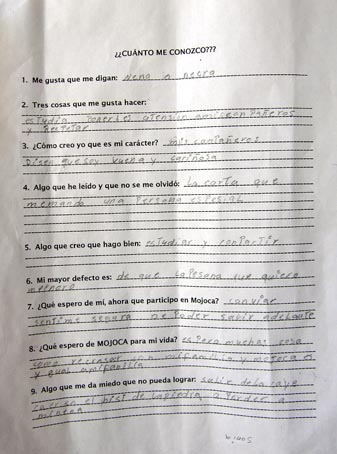 ¿¿CUÁNTO ME CONOZCO???
1. Me gusta que me digan: nena o negra
2. Tres cosas que me gusta hacer:
estudia ponerles atension amiscompañeros
y respetar
3. ¿Cómo creo yo que es mi carácter? mis compañeros
Disen que soy buena y cariñosa
4. Algo que he leído y que no se me olvidó: la carta que
memando una Persona espesial
5. Algo que creo que hago bien: estudiar y compartir
6. Mi mayor defecto es: de que la Pesona que quiero
7. ¿Qué espero de mí, ahora que participo en Mojoca?
sentirme segura de Poder salir adelante
8. ¿Qué espero de MOJOCA para mi vida? espero muchas cosa
con mifamilia y mojoca es
y qual amifamilia
9. Algo que me da miedo que no pueda lograr: salir dela caye
caer en el de lapiedra o Perder a
Sonia